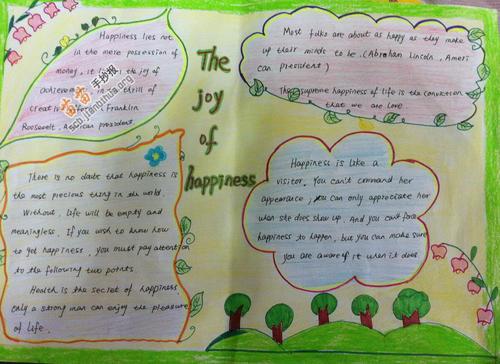 Happiness lies not
in the mere possession of
money, it in the joy of
achieve in the thrill of
creati Franklin
Roosevelt, American president.
The
joy
of
happiness
Most folks are about as happy as they make
up their minds to be. (Abrahan Lincoln, Ameri
can president)
The supreme happiness of life is the conviction
that we are love
There is no doubt that happiness is
the most precious thing in the world.
Without, life will be empty and
meaningless. If you wish to know how
to get happiness, you must pay attention
to the following two points.
Health is the secret of happiness
only a strong man can enjoy the pleasure
of life.
Happiness is like a
visitor. You can't command her
appearance, you can only appreciate her
when she does show up. And you can't force
happiness to happen, but you can make sure
you are aware of it when it does
手抄报